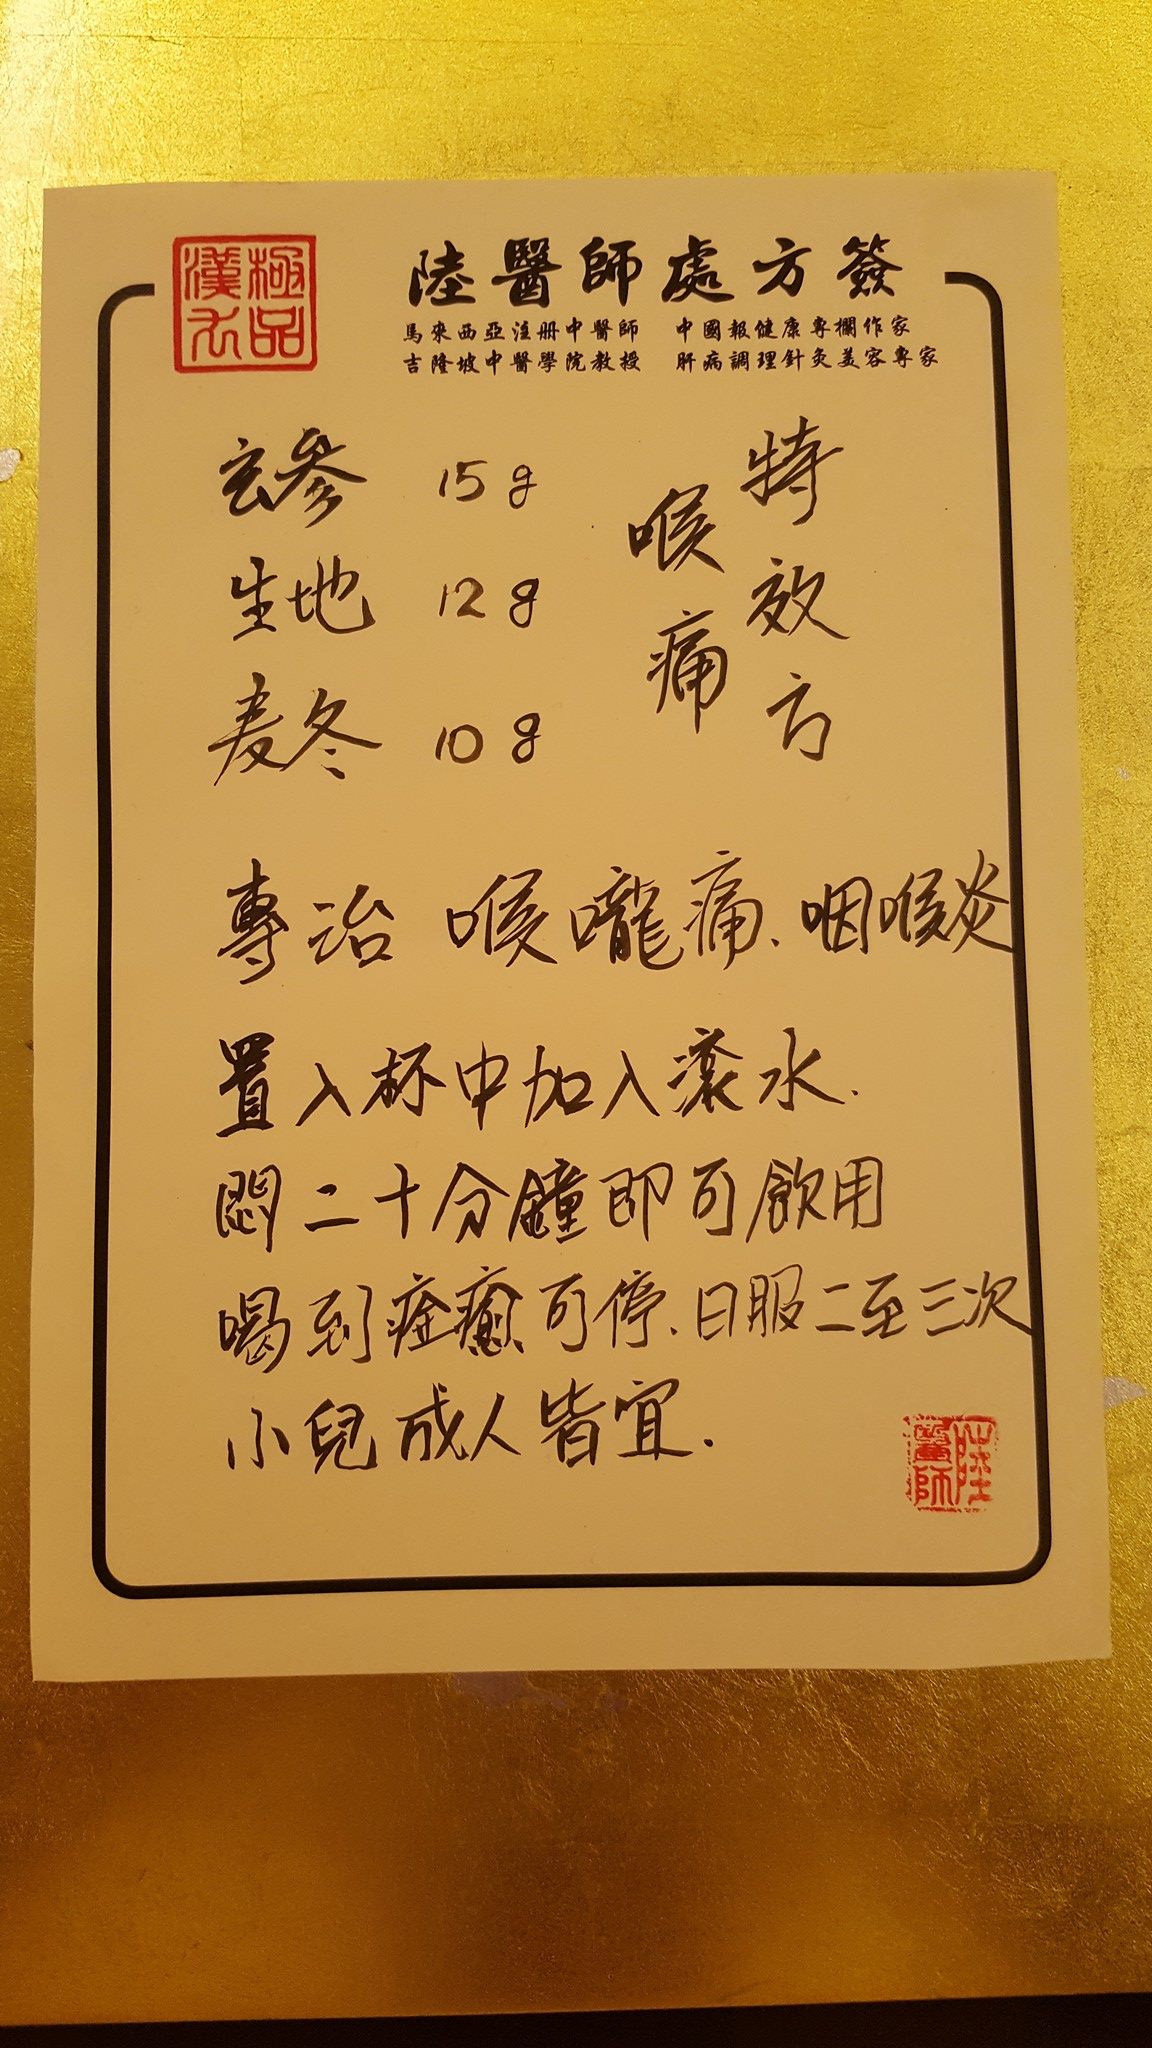 極品
漢方
陸醫師處方簽
馬來西亞注册中醫師 中國報健康專欄作家
吉隆坡中醫學院教授 肝病調理針灸美容專家
特效方
喉痛
玄參 15g
生地 12g
麦冬 10g
專治 喉嚨痛、咽喉炎
置入杯中加入滾水.
悶二十分鐘即可飲用
喝到痊癒可停、日服二至三次
小兒成人皆宜.
陸
醫師